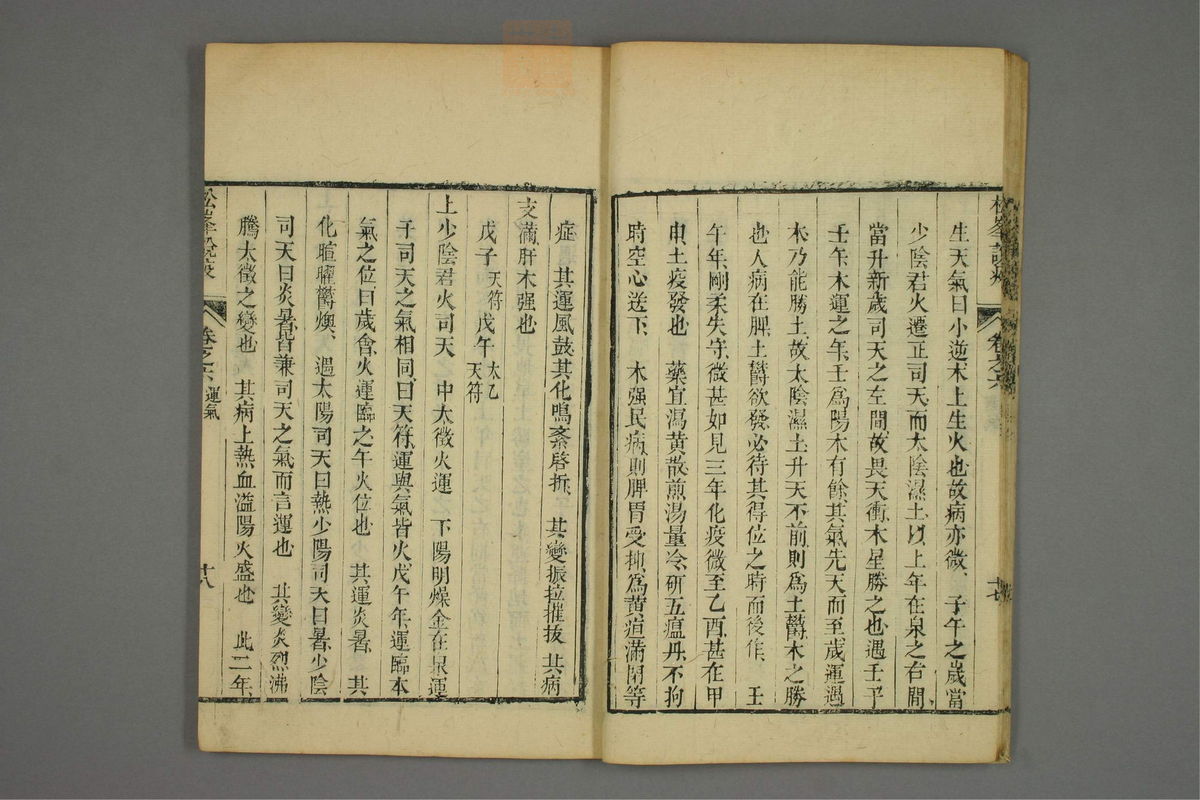 松峯說疫 卷之六 廿七
生天氣曰小逆木上生火也故病亦微 子午之歲當
少陰君火遷正司天而太陰濕土以上年在泉之右間
當升新歲司天之左間故畏天衝木星勝之也遇壬子
壬午木運之年壬爲陽木有餘其氣先天而至歲運過
木乃能勝土故太陰濕土升天不前則爲土鬱木之勝
也人病在脾土鬱欲發必待其得位之時而後作 壬
午年剛柔失守微甚如見三年化疫微至乙酉甚在甲
申土疫發也 藥宜瀉黃散煎湯量冷研五瘟丹不拘
時空心送下 木强民病則脾胃受抑爲黃疸滿閉等
症 其運風鼓其化鳴紊啓拆 其變振拉摧拔 其病
支滿肝木强也
戊子天符戊午太乙天符
上少陰君火司天 中太徵火運 下陽明燥金在泉運
子司天之氣相同曰天符運與氣皆火戊午年運臨本
氣之位曰歲會火運臨之午火位也 其運炎暑 其
化暄曜鬱燠 遇太陽司天曰熱少陽司天曰暑少陰
司天曰炎暑皆兼司天之氣而言運也 其變炎烈沸
騰太徵之變也 其病上熱血溢陽火盛也 此二年
松峯說疫 卷之六 運氣 廿八